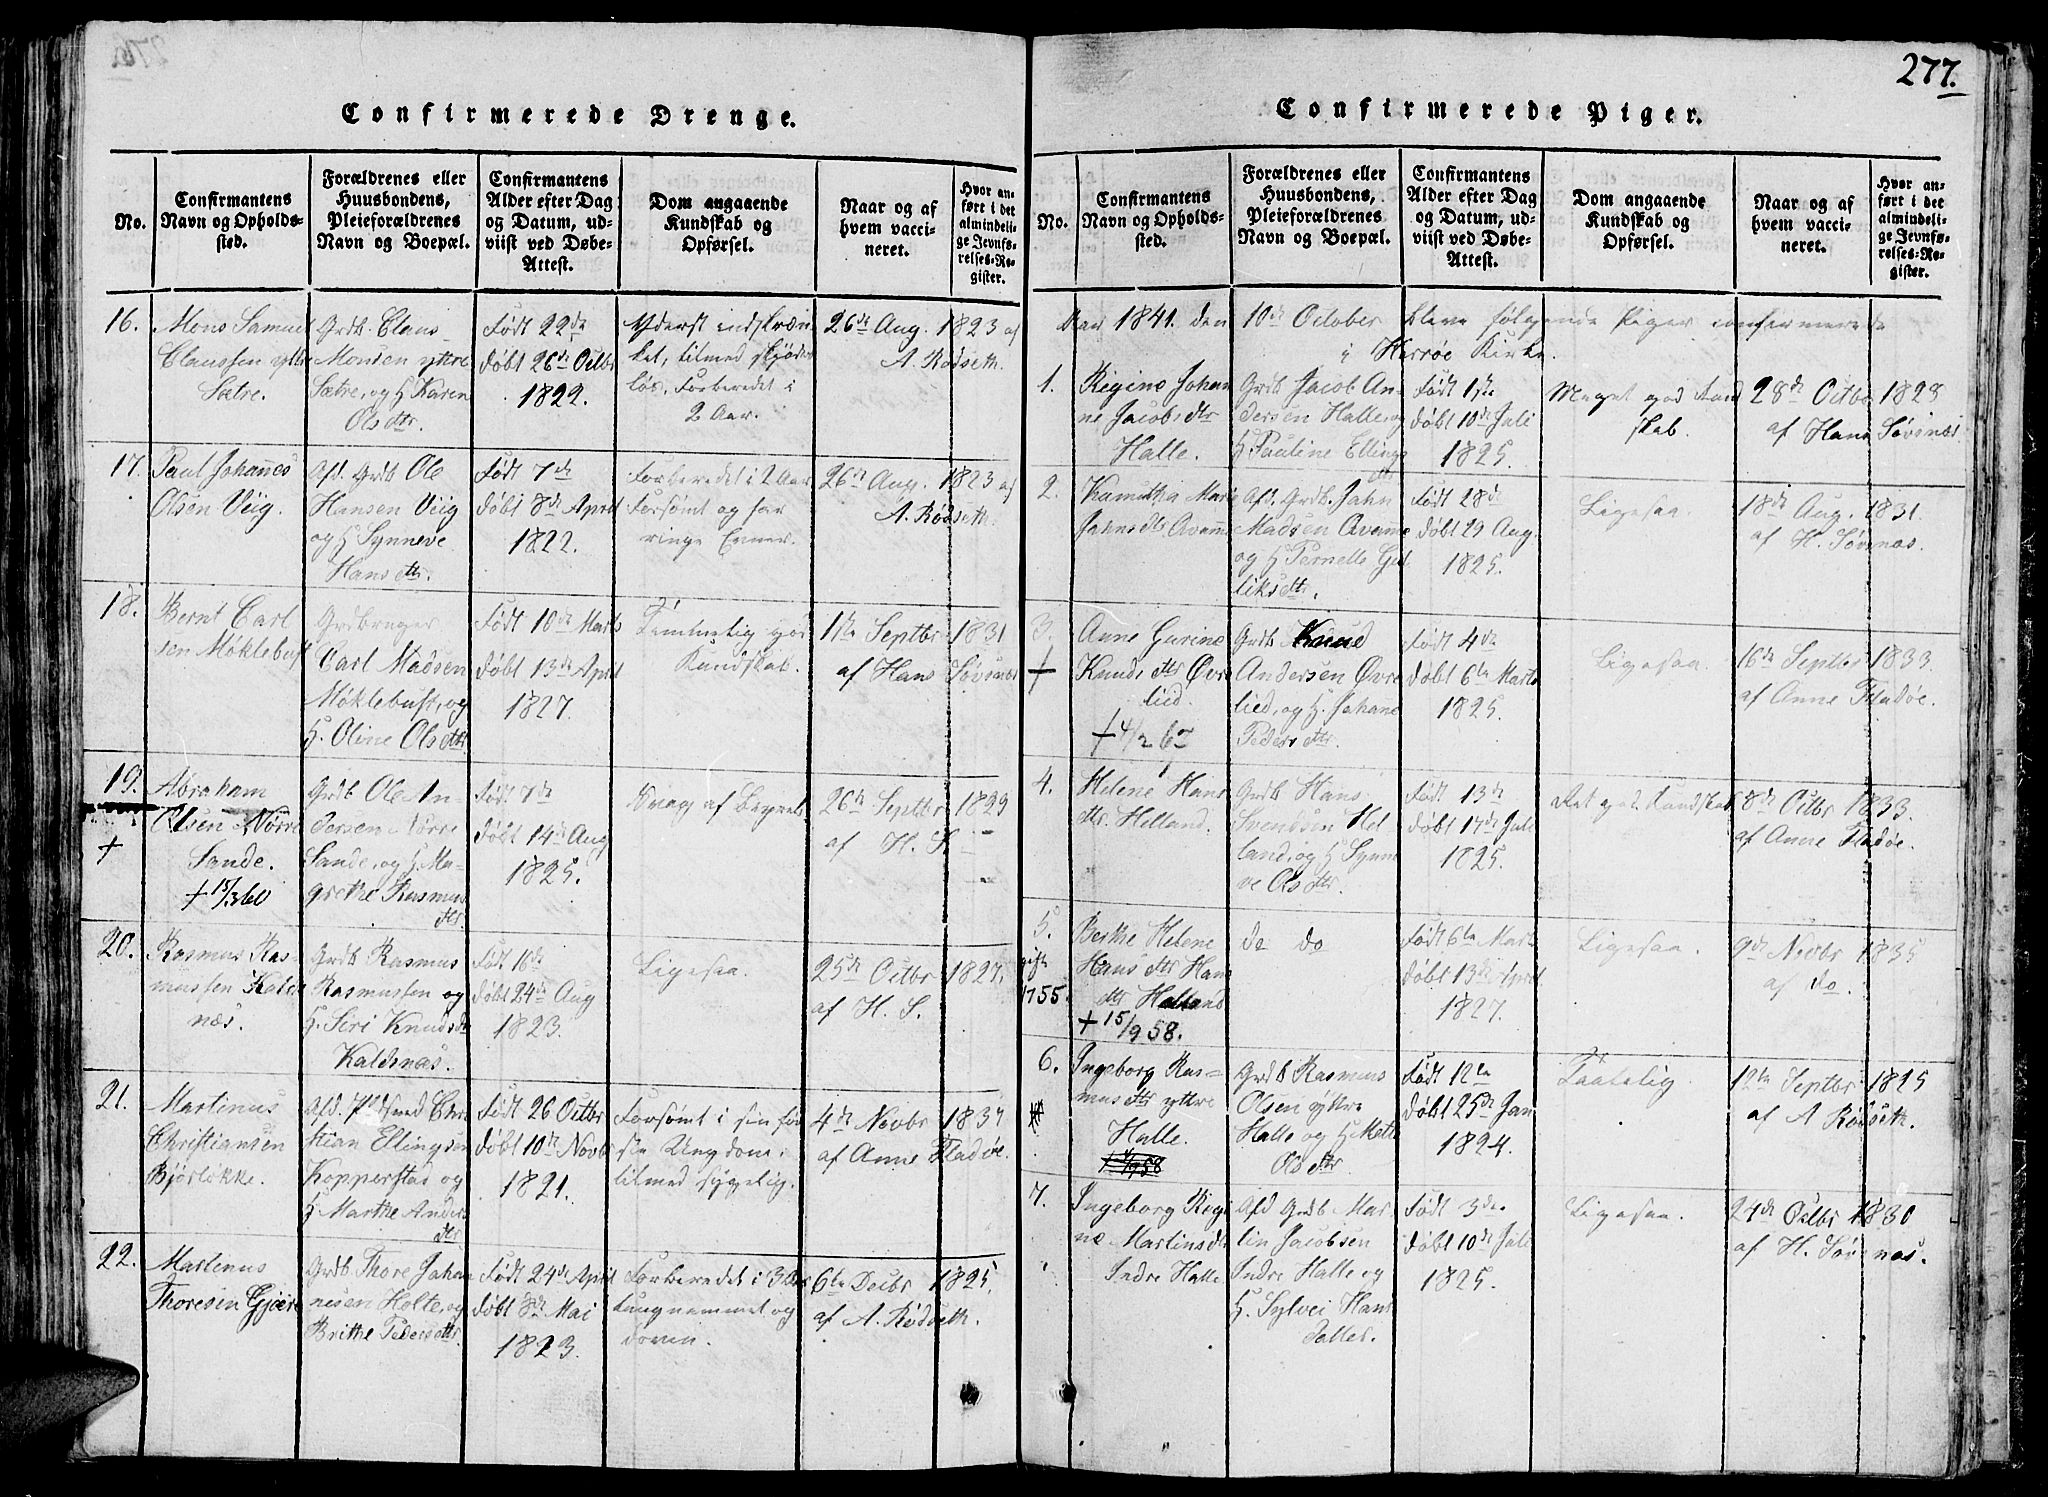 277.
Confirmerede Drenge.
No.
Confirmantens Navn og Opholdssted.
Forældrenes eller Huusbondens, Pleieforældrenes Navn og Boepæl.
Confirmantens Alder efter Dag og Datum, udviist ved Døbe-Attest.
Dom angaaende Kundskab og Opførsel.
Naar og af hvem vaccineret.
Hvor anført i det almindelige Jevnførelses-Register.
16.
Mons Samuel
Claussen ytre
Sætre.
Grdb. Claus
Monsen ytre
Sætre, og H. Karen
Ols dtr.
Født 22de
døbt 26de Octbr
1822.
Yderst indskræn
ket, tilmed skjødes
løs, Forberedet i
2 Aar.
26de Aug. 1823 af
A. Rødseth.
17.
Paul Johannes
Olsen Viig.
Afd. Grdb Ole
Hansen Viig
og H Synneve
Hans dtr.
Født 7de
døbt 8de April
1822.
Forberedet i 2 Aar
Forsømt og for
ringe Evner.
26de Aug. 1823 af
A. Rødseth.
18.
Bernt Carl
sen Møklebust
Grdbruger
Carl Madsen
Møklebust, og
H. Oline Ols dtr.
Født 10de Marts
døbt 13de April
1827.
Temmelig god
Kundskab.
11te Septbr 1831
af Hans Søvsnæs
19.
+
Abraham
Olsen Nørre
Sande.
+ 15/3 60
Grdb. Ole An-
dersen Nørre
Sande, og H. Ma-
grethe Rasmus
dtr.
Født 7de
døbt 14de Aug
1825.
Svag af Begreb
26de Septbr 1829
af H. S.
20.
Rasmus Ras-
mussen Kalde
næs.
Grdb Rasmus
Rasmussen og
H. Siri Knudsdr
Kaldenæs.
Født 16de
døbt 24de Aug
1823.
Ligesaa.
25de Octbr 1827.
af H. S.
21.
Martinus
Christiansen
Bjørløkke.
Afd. Chri
stian Ellingsen
Kopperstad og
H Marthe Anders
dtr.
Født 26 Octbr
døbt 10de Novbr
1821.
Forsømt i sin før
ste Ungdom,
tilmed sygelig.
4de Novbr 1837
af Anne Fladøe.
22.
Martinus
Thoresen Gjære
Grdb. Thore Johan
nesen Holte, og
Brithe Peders dtr.
Født 24de April
døbt 8de Mai
1823.
Forberedet i 3 Aar
tungnemmet og
doven.
6te Decbr 1825.
af A. Rødseth.
Confirmerede Piger.
No.
Confirmantens Navn og Opholdssted.
Forældrenes eller Huusbondens, Pleieforældrenes Navn og Boepæl.
Confirmantens Alder efter Dag og Datum, udviist ved Døbe-Attest.
Dom angaaende Kundskab og Opførsel.
Naar og af hvem vaccineret.
Hvor anført i det almindelige Jevnførelses-Register.
Aar 1841. den 10de October bleve følgende Piger confirmerede
i Herrøe Kirke.
1.
Regine Johan
ne Jacobs dtr
Halle.
Grdb Jacob An-
dersen Halle og
H. Pauline Ellings
dtr
Født 1ste
døbt 10de Juli
1825.
Meget god Kund
skab.
28de Octbr 1828
af Hans Søvsnæs.
2.
Marie
Jahns dtr Avamme
Afd. Grdb. Jahn
Madsen Avamme
og H Pernelle
Født 28de
døbt 29 Aug.
1825.
Ligesaa
18de Aug. 1831
af H. Søvsnæs.
3.
+
Anne Gurine
Knuds dtr Øvre
lied.
+ 4/2 67
Grdb Knud
Andersen Øvre
lied, og H. Johane
Peders dtr.
Født 4de
døbt 6te Marts
1825.
Ligesaa.
16de Septbr 1833.
af Anne Fladøe.
4.
Helene Hans
dtr. Helland.
Grdb Hans
Svendsen Hel
land, og H Synne
ve Ols dtr.
Født 13de
døbt 17de Juli
1825.
Ret god Kundskab
8de Octbr 1833.
af Anne Fladøe.
5.
gift
1755.
Berthe Helene
Hans dtr Hans
dtr Helland
+ 15/9 58.
do do
Født 6te Marts
døbt 13de April
1827.
Ligesaa.
9de Novbr 1835
af do.
6.
Ingeborg Ras-
mus dtr ytre
Halle.
Grdb Rasmus
Olsen ytre
Halle og H Mette
Ols dtr.
Født 12te
døbt 25de Jan
1824.
Taatelig
12te Septbr 1825
af A Rødseth.
7.
Ingeborg Regi
ne Martins dtr
Indre Halle.
Afd Grdb Mar
tin Jacobsen
Indre Halle og
H. Sylvei Hans
Født 3de
døbt 10de Juli
1825.
Ligesaa.
24de Octbr 1830
af H. Søvsnæs.